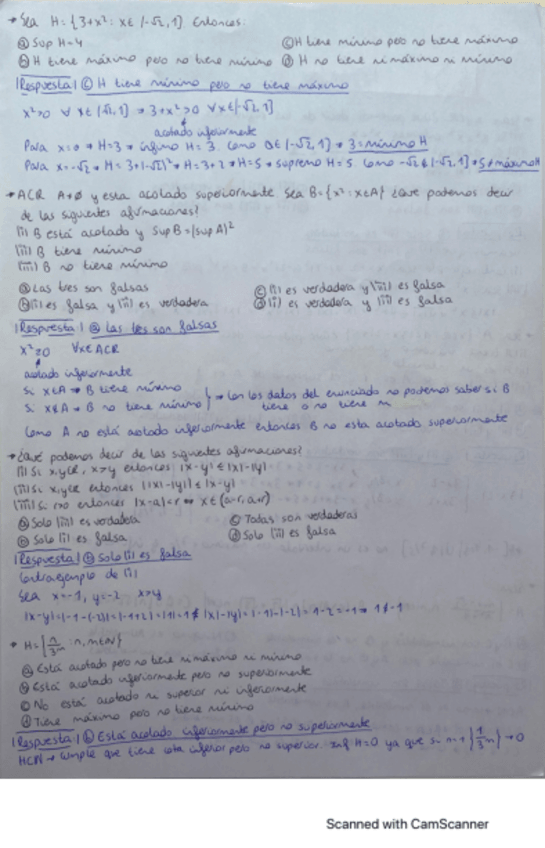 * Sea H = {3+x² : x∈(-√2, 1]} Entonces:
ⓐ Sup H=4 ⓒ H tiene mínimo pero no tiene máximo
ⓑ H tiene máximo pero no tiene mínimo ⓓ H no tiene ni máximo ni mínimo
|Respuesta| ⓒ H tiene mínimo pero no tiene máximo
acotado inferiormente
Para x=0 → H=3 → ínfimo H = 3. Como 0∈(-√2, 1] → 3 = mínimo H
Para x=-√2 → H = 3+(-√2)² → H=3+2 → H=5 → supremo H = 5
* A⊂R A≠ø y esta acotado superiormente Sea B={x² : x∈A} ¿Qué podemos decir
de las siguientes afirmaciones?
(i) B está acotado y Sup B = (sup A)²
(ii) B tiene mínimo
(iii) B no tiene mínimo
ⓐ Las tres son falsas ⓒ (i) es verdadera y (iii) es falsa
ⓑ (i) es falsa y (ii) es verdadera ⓓ (i) es verdadera y (ii) es falsa
|Respuesta| ⓐ Las tres son falsas
x²≥0 ∀x∈A⊂R
acotado inferiormente
Si x∈A → B tiene mínimo
Si x∉A → B no tiene mínimo } → Con los datos del enunciado no podemos saber si B
tiene o no tiene
Como A no está acotado inferiormente entonces B no esta acotado superiormente
* ¿Qué podemos decir de las siguientes afirmaciones?
(i) Si x,y∈R, x>y entonces |x-y| ≤ |x|-|y|
(ii) Si x,y∈R entonces ||x|-|y|| ≤ |x-y|
(iii) Si r>0 entonces |x-a|<r ↔ x∈(a-r, a+r)
ⓐ Solo (iii) es verdadera ⓒ Todas son verdaderas
ⓑ Solo (i) es falsa ⓓ Solo (ii) es falsa
|Respuesta| ⓑ Solo (i) es falsa
Contraejemplo de (i)
Sea x=-1, y=-2 x>y
|x-y|=|-1-(-2)|=|-1+2|=|1|=1 ≰ |x|-|y|=|-1|-|-2|=1-2=-1 → 1≰-1
* H={n/3ᵐ : n, m∈N}
ⓐ Está acotado pero no tiene ni máximo ni mínimo
ⓑ Está acotado inferiormente pero no superiormente
ⓒ No está acotado ni superior ni inferiormente
ⓓ Tiene máximo pero no tiene mínimo
|Respuesta| ⓑ Está acotado inferiormente pero no superiormente
cumple que tiene cota inferior pero no superior. Inf H=0 ya que si n=1 {1/3ᵐ} → 0
Scanned with CamScanner